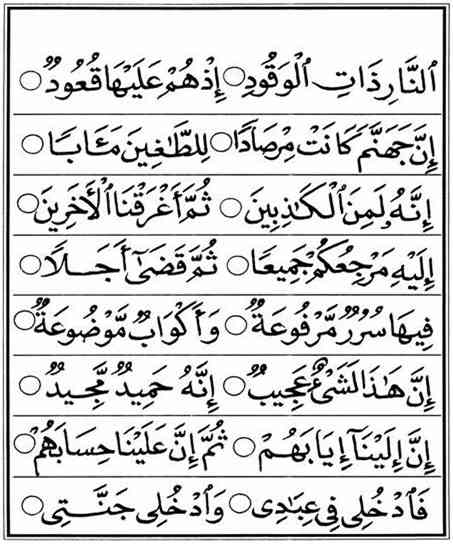 ٱلنَّارِ ذَاتِ ٱلْوَقُودِ ○ إِذْ هُمْ عَلَيْهَا قُعُودٌ ○
إِنَّ جَهَنَّمَ كَانَتْ مِرْصَادًا ○ لِلطَّٰغِينَ مَـَٔابًا ○
إِنَّهُۥ لَمِنَ ٱلْكَٰذِبِينَ ○ ثُمَّ أَغْرَقْنَا ٱلْأَخَرِينَ ○
إِلَيْهِ مَرْجِعُكُمْ جَمِيعًا ○ ثُمَّ قَضَىٰٓ أَجَـلًا ○
فِيهَا سُرُرٌ مَّرْفُوعَةٌ ○ وَأَكْوَابٌ مَّوْضُوعَةٌ ○
إِنَّ هَٰذَا لَشَىْءٌ عَجِيبٌ ○ إِنَّهُ حَمِيدٌ مَّجِيدٌ ○
إِنَّ إِلَيْنَآ إِيَابَهُمْ ○ ثُمَّ إِنَّ عَلَيْنَا حِسَابَهُمْ ○
فَٱدْخُلِى فِى عِبَٰدِى ○ وَٱدْخُلِى جَنَّتِى ○